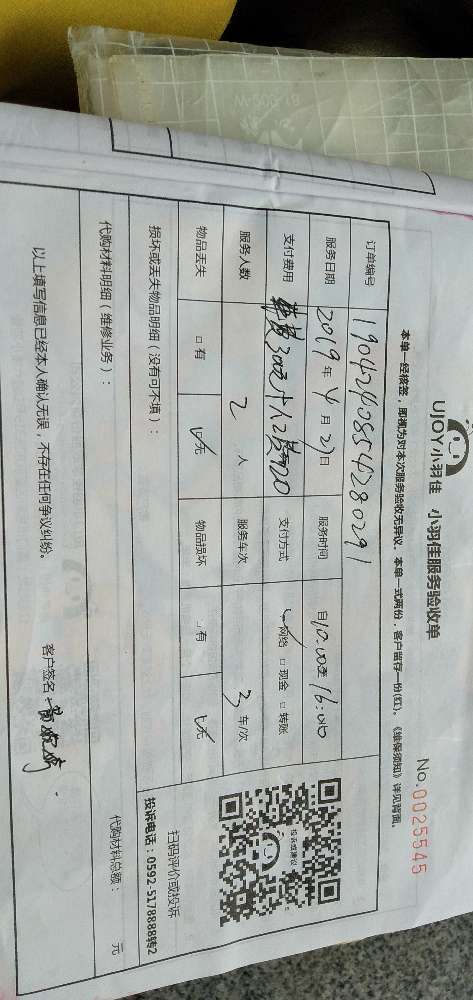 UJOY小羽佳 小羽佳服务验收单
No. 0025545
本单一经核签，即视为对本次服务验收无异议。本单一式两份，客户留存一份(红)。《维保须知》详见背面。
订单编号 1904240854280291
服务日期 2019年4月27日 服务时间 自10:00至16:00
支付费用 支付方式 网络 □现金 □转账
服务人数 2人 服务车次 3车/次
物品丢失 □有 无 物品损坏 □有 无
损坏或丢失物品明细（没有可不填）：
扫码评价或投诉
投诉电话：0592-5178888转2
代购材料明细（维修业务）：
代购材料总额： 元
以上填写信息已经本人确认无误，不存在任何争议纠纷。
客户签名：